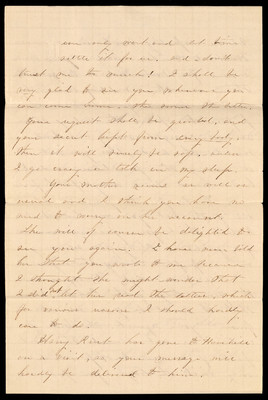 can only wait and let time
settle it for us. and don't
trust me to much! I shall be
very glad to see you whenever you
can come home. the sooner the better.
Your request shall be granted, and
your secret kept from every body,
then it will surely be safe, unless
I go crazy or talk in my sleep.
Your mother seems as well as
usual and I think you have no
need to worry on her account.
She will of course be delighted to
see you again. I have never told
her that you wrote to me because
I thought she might wonder that
I did not let her read the letters, which
for various reasons I should hardly
care to do.
Henry has gone to
on a visit, so your message will
hardly be delivered to him.